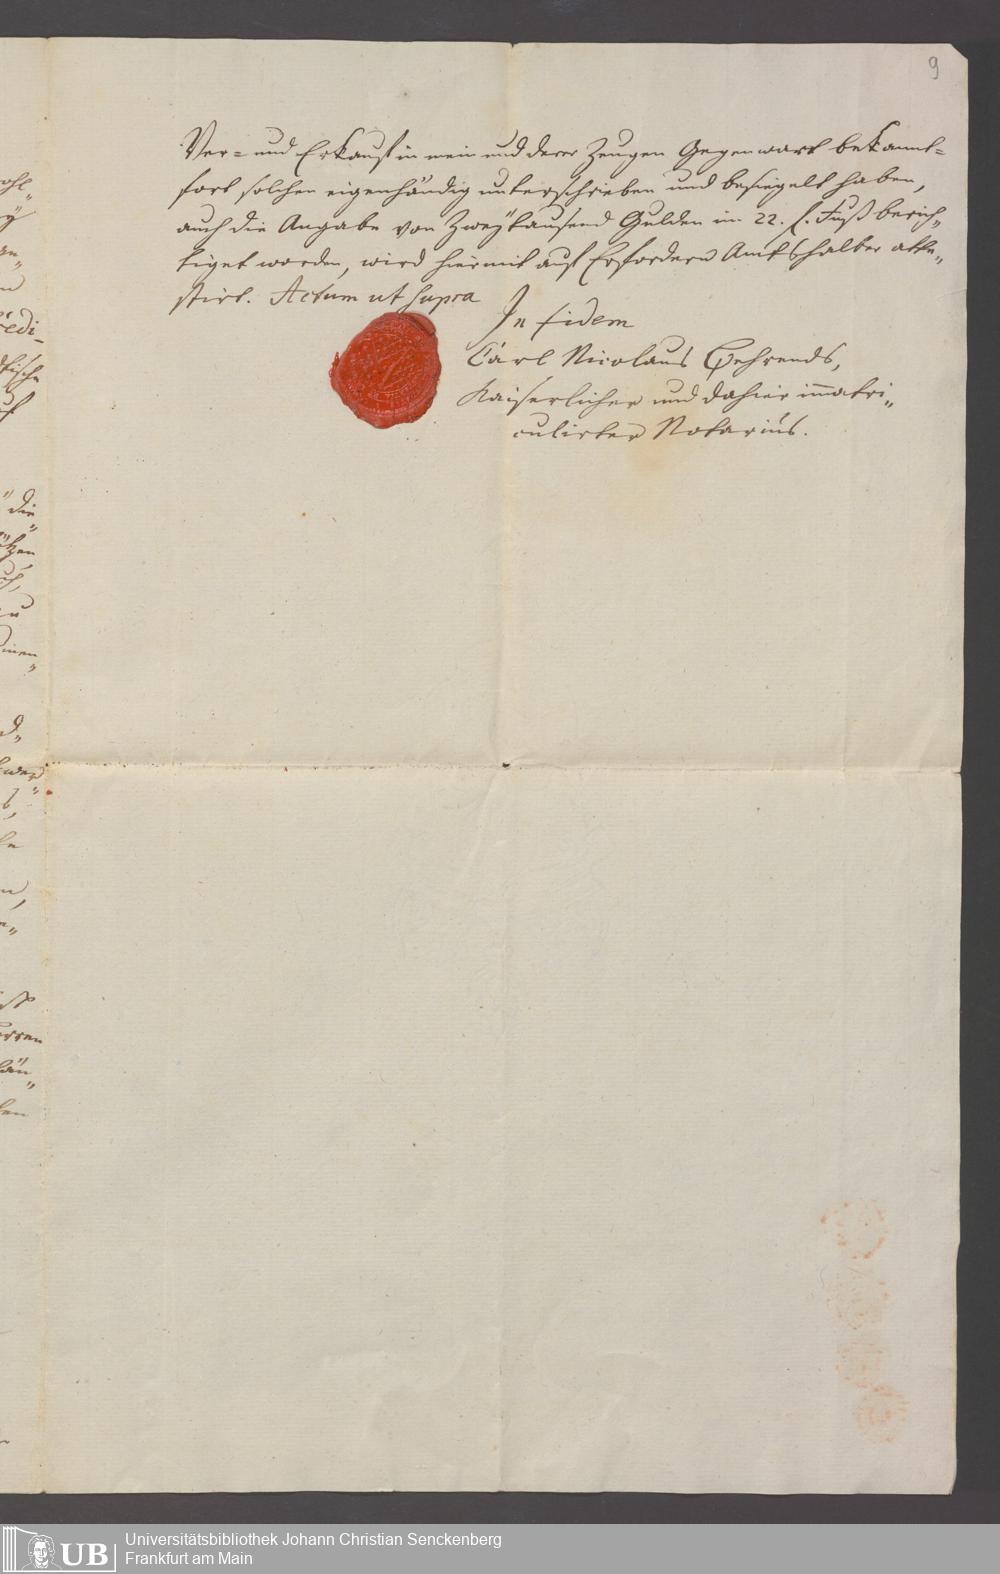 9
Ver- und Erkauf in mein und derer Zeugen Gegenwart bekannt-
fort solchen eigenhändig unterschrieben und besiegelt haben,
auch die Angabe von Zweÿtausend Gulden im 22. f. Fuß berich„
tiget worden, wird hiermit auf Erfordern Amtshalber atte„
stirt. Actum ut supra
In fidem
Carl Nicolaus Behrends,
Kaiserlicher und dahier im̅atri„
culirter Notarius.
UB
Universitätsbibliothek Johann Christian Senckenberg
Frankfurt am Main